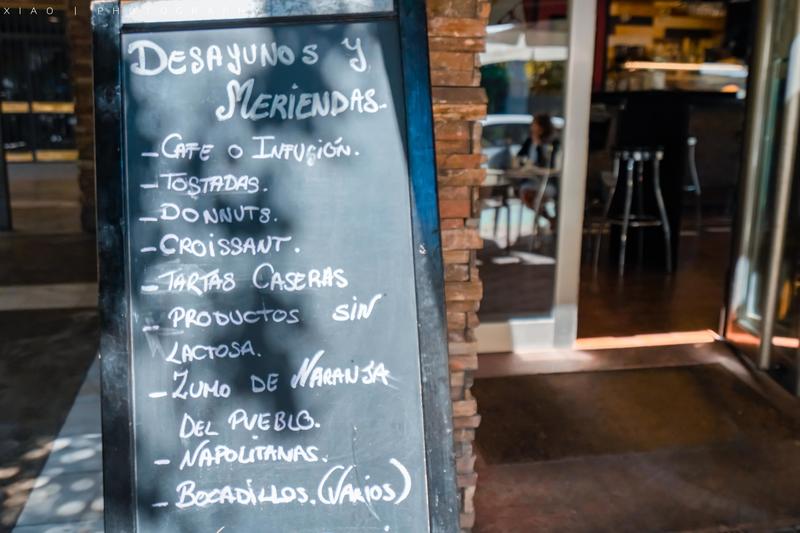 XIAO | PHOTOGRAPHY
DESAYUNOS Y
MERIENDAS.
- CAFE O INFUSIÓN.
- TOSTADAS.
- DONNUTS.
- CROISSANT.
- TARTAS CASERAS
- PRODUCTOS SIN
LACTOSA.
- ZUMO DE NARANJA
DEL PUEBLO.
- NAPOLITANAS.
- BOCADILLOS. (VARIOS)